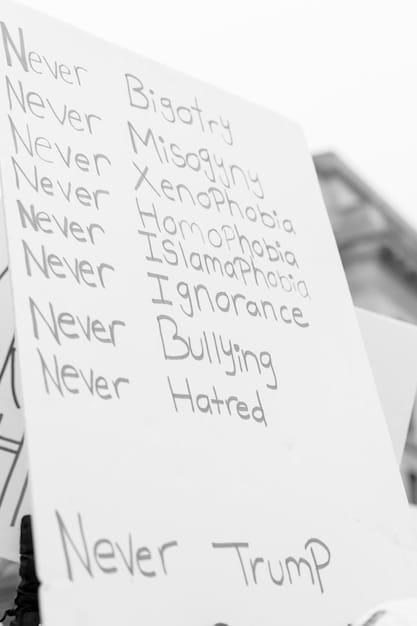 Never Bigotry
Never Misogyny
Never Xenophobia
Never Homophobia
Never Islamaphobia
Never Ignorance
Never Bullying
Never Hatred
Never Trump